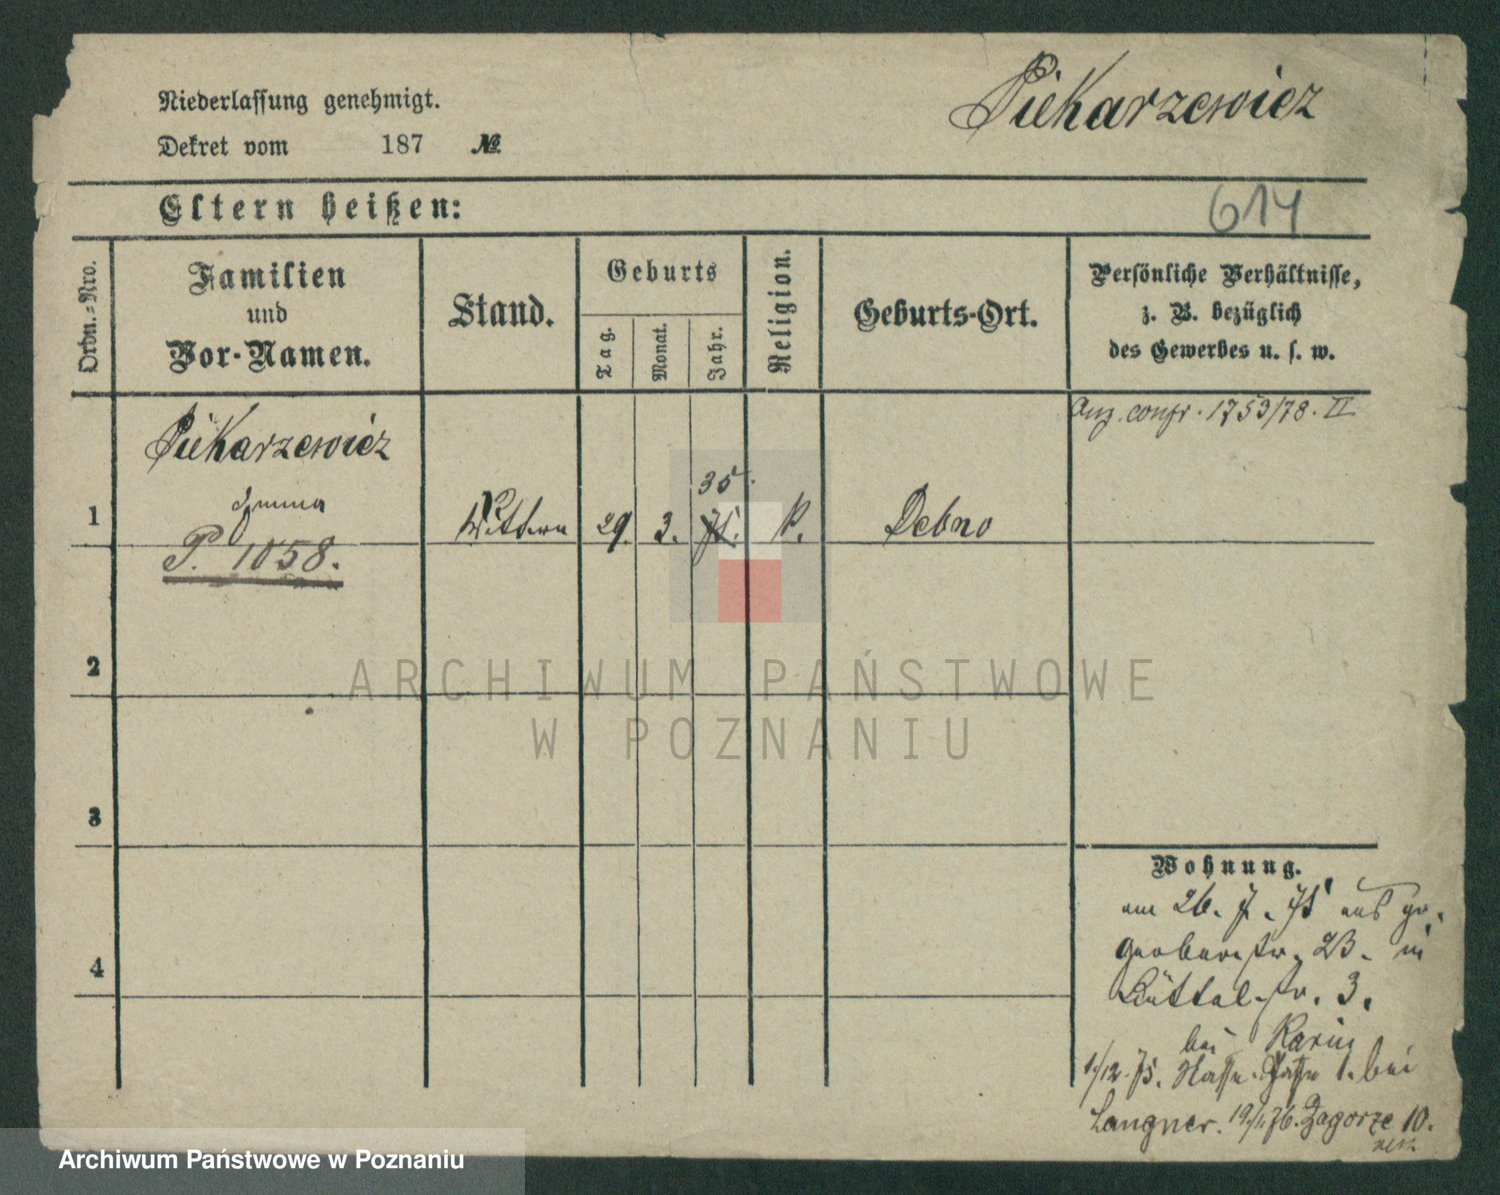 Piekarzewicz
Niederlassung genehmigt.
Dekret vom 187 №
Eltern heißen:
614
Ordn.-Nro.
Familien
und
Vor-Namen.
Stand.
Geburts
Tag.
Monat.
Jahr.
Religion.
Geburts-Ort.
Persönliche Verhältnisse,
z. B. bezüglich
des Gewerbes u. s. w.
1753/78. II
Piekarzewicz
35.
1 Emma Wittwe 29. 3. K. Debno
P. 1058.
2
3
4
ARCHIWUM PAŃSTWOWE
W POZNANIU
Wohnung.
am 26. 7. 75 aus gr.
Gerberstr. 23. in
Büttelstr. 3.
bei
1/12. 75. Nasse Gasse 1. bei
Langner. 19/1. 76. Zagorze 10.
Archiwum Państwowe w Poznaniu